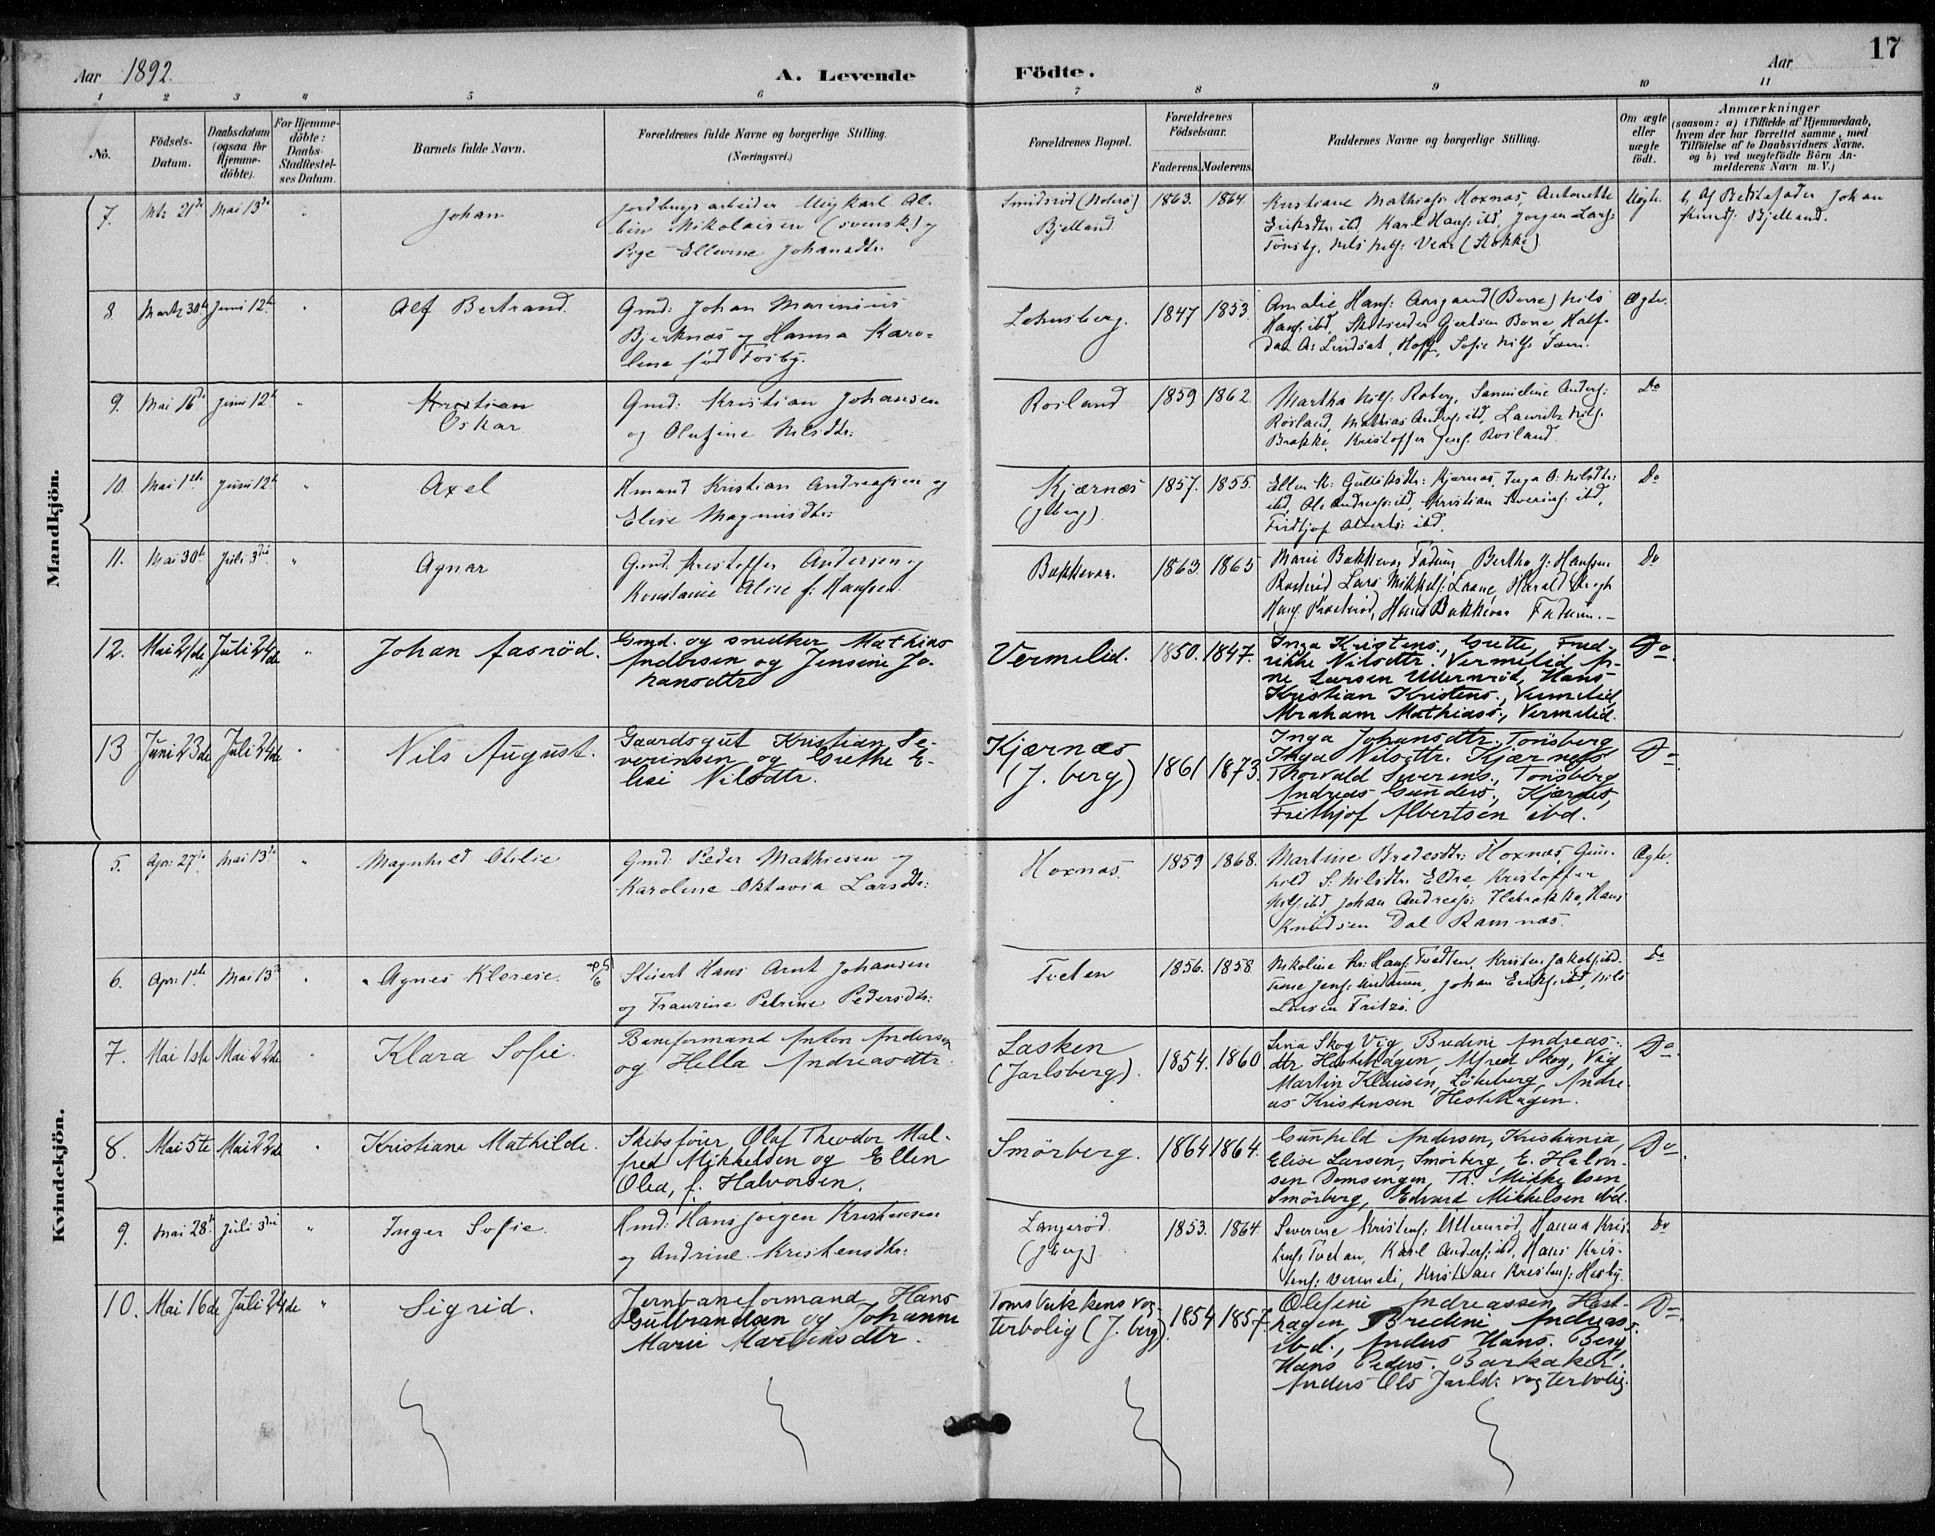 17
Aar 1892.
A. Levende Födte.
Aar
1 2 3 4 5 6 7 8 9 10 11
No.
Födsels-
Datum.
Daabsdatum
(ogsaa for
Hjemme-
döbte).
For Hjemme-
döbte:
Daabs-
Stadfæstel-
ses Datum.
Barnets fulde Navn.
Forældrenes fulde Navne og borgerlige Stilling.
(Næringsvei.)
Forældrenes Bopæl.
Forældrenes
Födselsaar.
Faderens. Moderens.
Faddernes Navne og borgerlige Stilling.
Om ægte
eller
uægte
födt.
Anmærkninger
(saasom: a) i Tilfælde af Hjemmedaab,
hvem der har forrettet samme, med
Tilföielse af to Daabsvidners Navne,
og b) ved uægtefödte Börn An-
melderens Navn m. V.)
Mandkjön.
7. 21de Mai 13de " Johan
Ungkarl Al-
bin Mikolaisen (svensk) og
Pige Ellevine Johansdtr:
Bjelland
1863. 1864.
Kristiane Mathiass: Hoxnæs, Antonette
ibd, Karl Hans: ibd, Jörgen Lars:
Tönsbg, Nils Nils: (Stokke)
Uægte.
b, Af Bedstefader Johan
Bjelland.
8. Marts 30te Juni 12te " Alf Bertrand.
Gmd: Johan Marinius
Bjerknæs og Hanna Karo-
line, föd Fosby.
1847 1853.
Amalie Hans: Aasgaard (Borre) Nils
Hans: ibd, Gjertsen Borre, Half-
dan A: Hoff, Sofie Nils: Sem.
Ægte.
9. Mai 16de Juni 12te " Kristian
Oskar
Gmd: Kristian Johansen
og Olufine Nilsdtr:
Rosland
1859 1862
Martha Nils: Samueline Anders:
Rosland, Mathias Anders: ibd, Lauritz Nils:
Brække, Kristoffer Jens: Rosland.
Do
10. Mai 1ste Juni 12te " Axel
Kristian Andreassen og
Elise Magnusdtr:
Kjærnæs
(J.berg)
1857. 1855.
Ellen K: Gulliksdtr: Kjærnæs, Inga O: Nilsdtr:
ibd, Ol: Andreas: ibd, Kristian Severins: ibd,
Fridtjof Alberts: ibd.
Do
11. Mai 30te Juli 3die " Agnar
Gmd. Kristoffer Andersen og
Konstanse Alise f: Hanssen.
Bakkevar.
1863. 1865
Marie Bakkevar Fadum, Bertha J: Hanssen
Lars Mikkels: Laane, Harald
Hans: Hans Bakkevar Fadum. —
Do
12. Mai 21de Juli 24de " Johan Aasröd.
Gmd. og snedker Mathias
Andersen og Jensine Jo-
hansdtr
Vermelid.
1850. 1847.
Inga Kristens., Grette, Fred-
rikke Nilsdtr. Vermelid, An-
ne Larsen Ullernröd, Hans
Kristian Kristens., Vermelid,
Abraham Mathiass., Vermelid.
Do.
13 Juni 23de Juli 24de " Nils August.
Gaardsgut Kristian Se-
verinsen og Grethe E-
lise Nilsdtr.
Kjærnæs
(J. berg)
1861 1873.
Inga Johansdtr. Tönsberg
Inga Nilsdtr. Kjærnæs
Thorvald Severins., Tönsberg
Andreas Gunders., Kjærnæs,
Frithjof Albertsen ibd.
Do.
Kvindekjön.
5. Apr: 27de Mai 13de " Magnhild Otilie
Gmd: Peder Mathiesen og
Karoline Oktavia Larsdtr:
Hoxnæs.
1859 1868.
Martine Bredesdtr: Hoxnæs, Gun-
hild S: Nilsdtr: Eldre, Kristoffer
Nils: ibd, Johan Andreas: Hans
Knudsen Dal Ramnæs.
Ægte.
6. Apr: 1ste Mai 13de " Agnes Klarese.
Hans Arnt Johansen
og Petrine Pedersdtr:
Tveten
1856. 1858
Nikoline Kr: Hans: Tvedten, Kristen Jakobs: ibd.
Jens: Johan Eriks: ibd, Nils
Larsen Fritzö.
Do
7. Mai 1ste Mai 22de " Klara Sofie.
Baneformand Anton Andersen
og Hella Andreasdtr.
Lasken
(Jarlsberg).
1854. 1860
Lina Skog Vig, Bredine Andreas-
dtr Hestehagen, Alfred Skog, Vig
Martin Klausen, Lökeberg, Andre-
as Kristensen Hestehagen.
Do.
8. Mai 5te Mai 22de " Kristiane Mathilde.
Skibsförer Olaf Theodor Mal-
fred Mikkelsen og Ellen
Olea, f. Halvorsen.
Smörberg.
1864 1864.
Gunhild Andersen, Kristiania,
Elise Larsen, Smörberg, E. Halvor-
sen Domsengen, Th. Mikkelsen
Smörberg, Edvard Mikkelsen ibd.
Do.
9. Mai 28de Juli 3die " Inger Sofie.
Hans Jörgen Kristensen
og Andrine Kristensdtr:
Langeröd.
(J.berg)
1853. 1864.
Severine Kristens: Ullernröd, Hanna Kris-
tens: Tvetan, Karl Anders: ibd, Hans Kris-
tens: Vermeli, Kristian Kristens: Hesby.
Do
10. Mai 16de Juli 24de " Sigrid.
Jernbaneformand Hans
Gulbrandsen og Johanne
Marie Martinsdtr.
Tomsbakkens vog-
terbolig (J. berg).
1854 1857.
Olefine Andreassen Hest-
hagen, Bredine Andreass.
ibd., Anders Hans. Berg,
Hans Peders. Barkaker.
Anders Ols Jarlsb. vogterbolig.
Do.